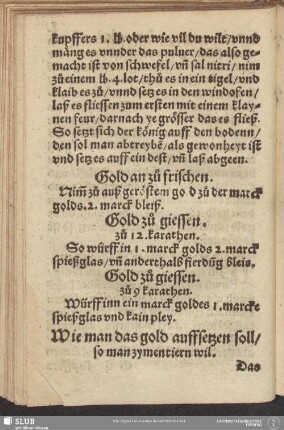 kupffers 1. lb. oder wie vil du wilt/vnnd
mäng es vnnder das puluer/das also ge-
macht ist von schwefel/vñ sal nitri/nim
zů einem lb. 4. lot/thů es in ein tigel/vnd
klaib es zů/vnnd setz es in den windofen/
laß es fliessen zum ersten mit einem klay-
nen feur/darnach ye grösser das es fließ.
So setzt sich der künig auff den bodenn/
den sol man abtreybẽ/als gewonheyt ist
vnd setz es auff ein dest/vñ laß abgeen.
Gold an zů frischen.
Nim̃ zů auß geröstem go d zů der marck
golds. 2. marck bleiß.
Gold zů giessen.
zů 12. karathen.
So würff in 1. marck golds 2. marck
spießglas/vñ anderthalb fierdũg bleis.
Gold zů giessen.
zů 9 karathen.
Würff inn ein marck goldes 1. marcke
spießglas vnd kain pley.
Wie man das gold auffsetzen soll/
so man zymentiern wil.
Das
SLUB